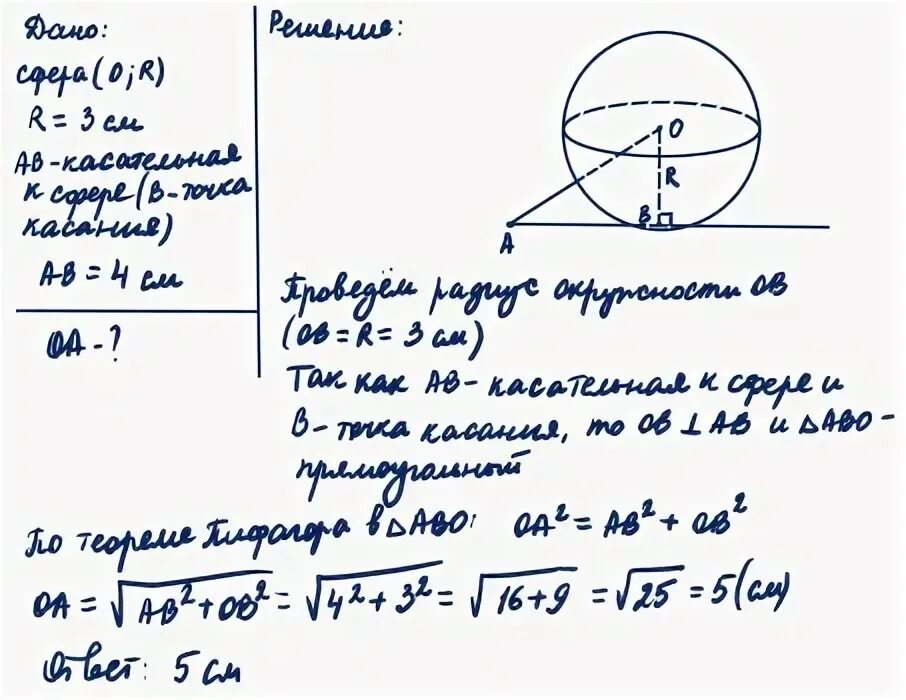 Дано:
сфера (О; R)
R = 3 см
АВ - касательная
к сфере (В - точка
касания)
АВ = 4 см
ОА - ?
Решение:
О
R
В
А
Проведём радиус окружности ОВ
(ОВ = R = 3 см)
Так как АВ - касательная к сфере и
В - точка касания, то ОВ ⊥ АВ и △АВО -
прямоугольный
По теореме Пифагора в △АВО: ОА² = АВ² + ОВ²
ОА = √(АВ² + ОВ²) = √(4² + 3²) = √(16 + 9) = √25 = 5 (см)
Ответ: 5 см